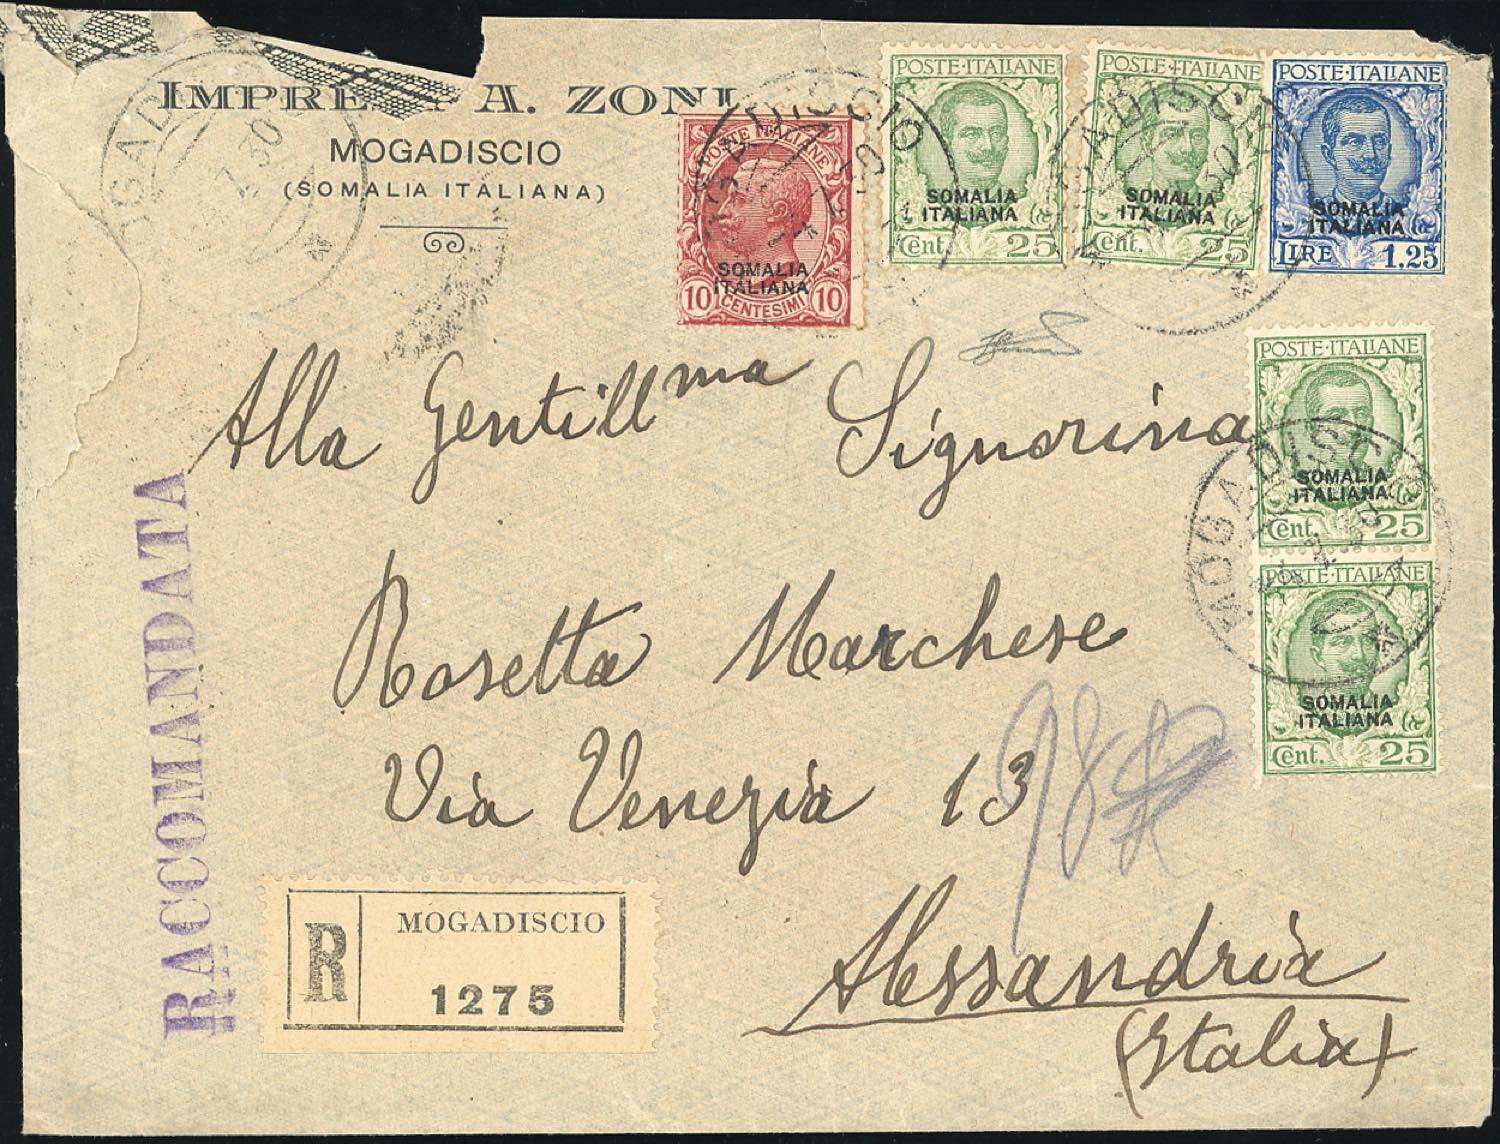 A. ZONI
MOGADISCIO
(SOMALIA ITALIANA)
POSTE ITALIANE
SOMALIA
ITALIANA
10 CENTESIMI 10
POSTE·ITALIANE
SOMALIA
ITALIANA
Cent. 25
POSTE·ITALIANE
SOMALIA
ITALIANA
Cent. 25
POSTE·ITALIANE
SOMALIA
ITALIANA
LIRE 1.25
POSTE·ITALIANE
SOMALIA
ITALIANA
Cent. 25
POSTE·ITALIANE
SOMALIA
ITALIANA
Cent. 25
Alla Gentillma Signorina
Rosetta Marchese
Via Venezia 13
Alessandria
(Italia)
RACCOMANDATA
R MOGADISCIO
1275